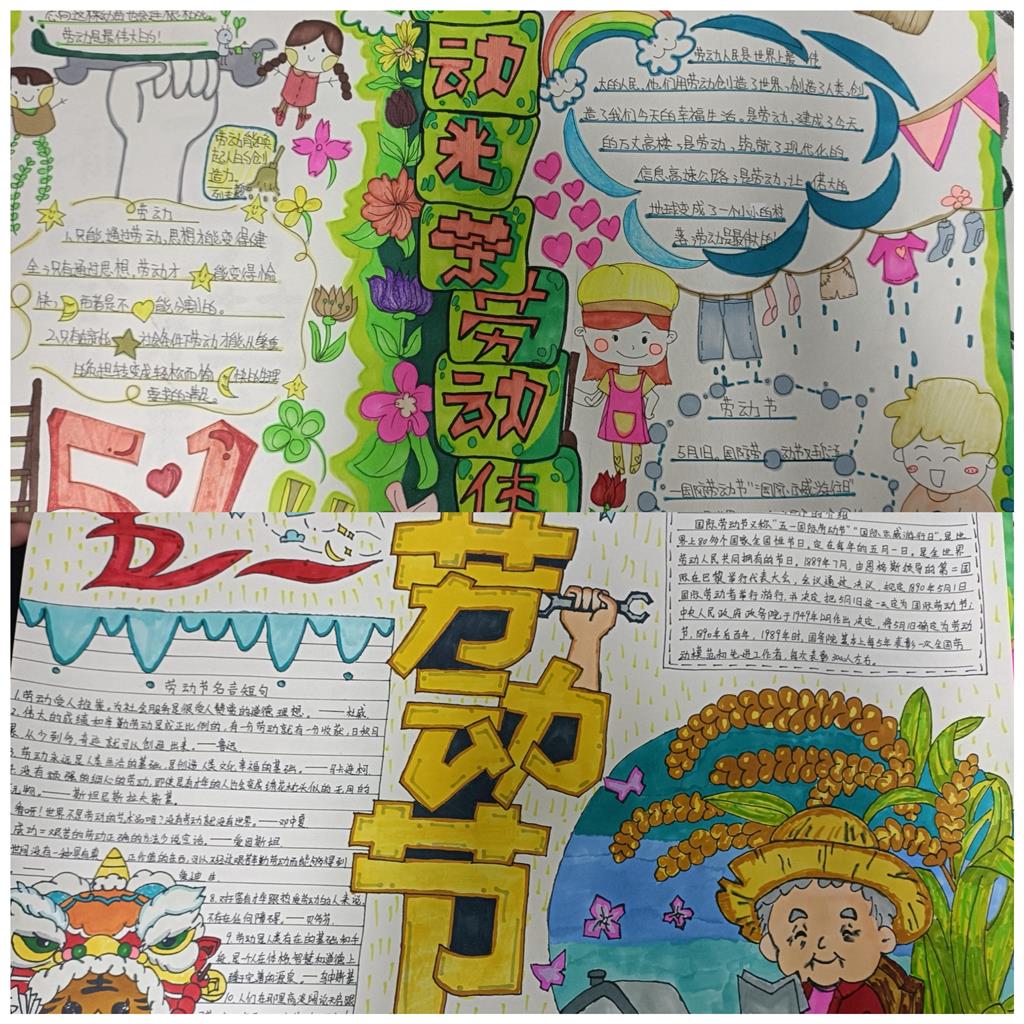 劳动是最伟大的!
劳动能唤
起人的创
造力。
劳动
1.只能通过劳动,思想才能变得健
全;只有通过思想,劳动才能变得愉
快;两者是不能分割的。
社会条件下劳动才能从
5.1
动
光
荣
劳
动
佳
劳动人民是世界上最伟
大的人民,他们用劳动创造了世界,创造了人类,创
造了我们今天的幸福生活。是劳动,建成了今天
的万丈高楼;是劳动,筑就了现代化的
信息高速公路;是劳动,让偌大的
地球变成了一个小小的村
落;劳动是最伟大的!
劳动节
5月1日。国际劳动节又称
"国际劳动节""国际示威游行日"
五一
劳动节
国际劳动节又称"五一国际劳动节""国际示威游行日"是世
界上80多个国家全国性节日,定在每年的五月一日,是全世界
劳动人民共同拥有的节日,1889年7月,由恩格斯领导的第二国
际在巴黎举行代表大会,会议通过决议,规定1890年5月1日
国际劳动者举行游行,并决定把5月1日这一天定为国际劳动节;
中央人民政府政务院于1949年12月作出决定,将5月1日确定为劳动
节。1890年后百年,1989年时,国务院基本上每5年表彰一次全国劳
动模范和先进工作者,每次表彰3000人左右。
劳动节名言短句
1.劳动受人推崇。为社会服务是很受人赞赏的道德理想。——杜威
2.伟大的成绩和辛勤劳动是成正比例的,有一份劳动就有一份收获,日积月
累,从少到多,奇迹就可以创造出来。——鲁迅
3.劳动永远是人类生活的基础,是创造人类文化幸福的基础。
——斯坦尼斯拉夫斯基
看呀!世界不是劳动的艺术品吗?没有劳动就没有世界。——邓中夏
成功=艰苦的劳动+正确的方法+少说空话。——爱因斯坦
爱迪生
8.对于富有才华跟热爱劳动的人来说,
不存在任何障碍。——贝多芬
9.劳动是人类存在的基础和手
段,是个人在体格、智慧和道德上
臻于完善的源泉。——乌申斯基